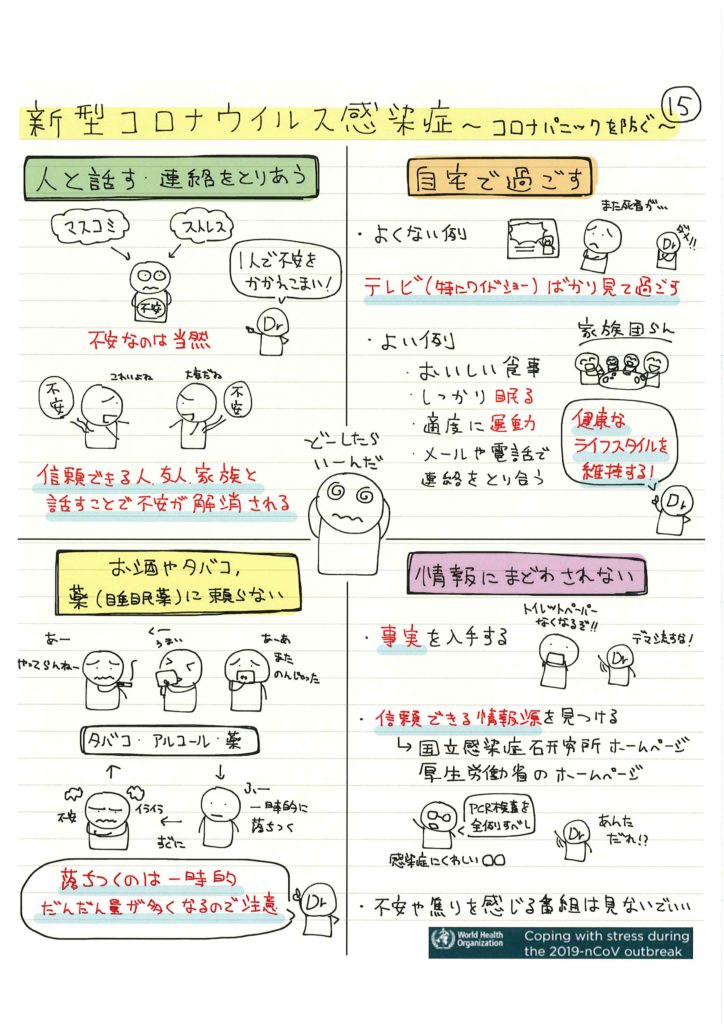 新型コロナウイルス感染症～コロナパニックを防ぐ～
15
人と話す・連絡をとりあう
マスコミ
ストレス
不安
1人で不安を
かかえこまい!
Dr
不安なのは当然
不安
これいよね
大変だね
不安
信頼できる人、友人、家族と
話すことで不安が解消される
自宅で過ごす
・よくない例
また死者が…
ダメ!!
Dr
テレビ(特にワイドショー)ばかり見て過ごす
・よい例
・おいしい食事
・しっかり眠る
・適度に運動
・メールや電話で
連絡をとり合う
家族団らん
健康な
ライフスタイルを
維持する!
Dr
どーしたら
いーんだ
お酒やタバコ,
薬(睡眠薬)に頼らない
あー
やってらんねー
くー
うまい
あーあ
また
のんじゃった
タバコ・アルコール・薬
↑
↓
不安
イライラ
←
すぐに
ふぃー
一時的に
落ちつく
落ちつくのは一時的
だんだん量が多くなるので注意
Dr
情報にまどわされない
・事実を入手する
トイレットペーパー
なくなるぞ!!
デマ流すな!
Dr
・信頼できる情報源を見つける
↳国立感染症研究所ホームページ
厚生労働省のホームページ
PCR検査を
全例すべし
感染症にくわしい○○
あんた
だれ!?
Dr
・不安や焦りを感じる番組は見ないでいい
World Health
Organization
Coping with stress during
the 2019-nCoV outbreak